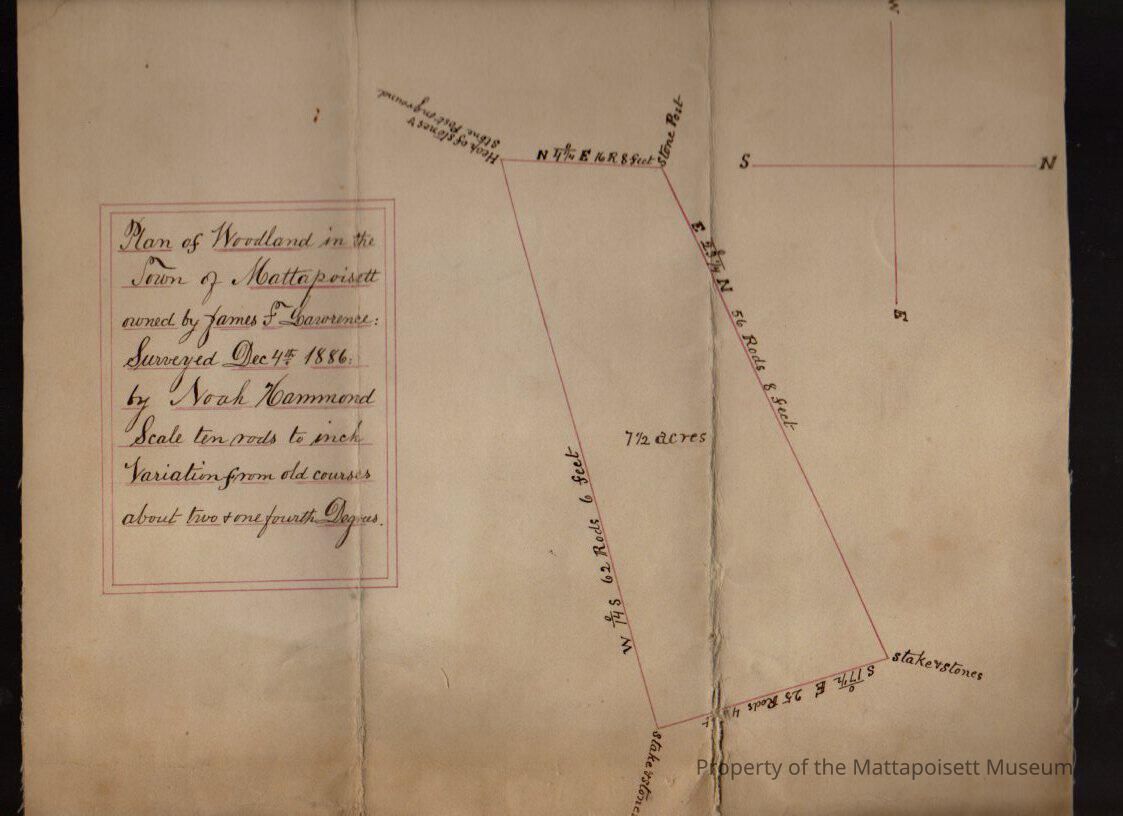 Plan of Woodland in the
Town of Mattapoisett
owned by James F Lawrence:
Surveyed Dec 4th 1886:
by Noah Hammond
Scale ten rods to inch
Variation from old courses
about two & one fourth Degrees.
Heap of stones &
stone Post in ground
N E 16 R 8 feet
stone Post
W
S
N
E
E N 56 Rods 8 feet
7 1/2 acres
W 14° S 62 Rods 6 feet
stake & stones
S 17 1/2° E 25 Rods 4
stake & stones
Property of the Mattapoisett Museum